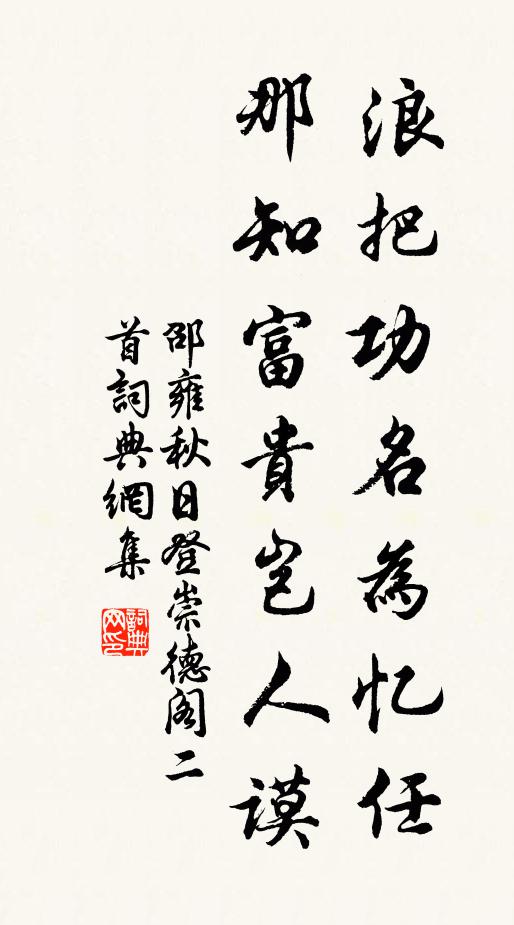 浪把功名為忆任
那知富貴岂人谟
邵雍秋日登崇德阁二
首詞典網集
詞典
网印